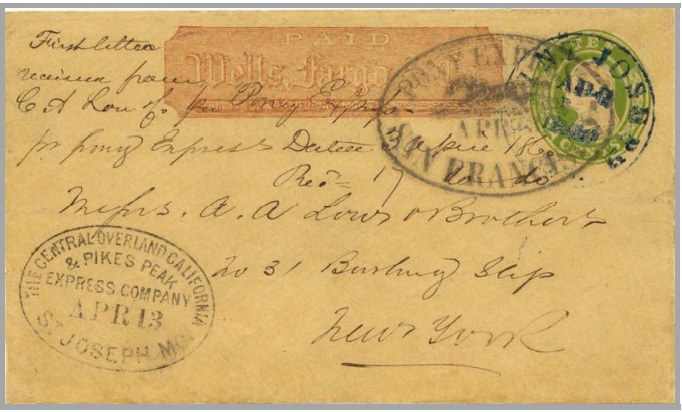 First letter
received from
C A Low
pr Pony Express
pr pony Express Dated
Rec 17
Messrs. A. A Low & Brothers
31 Burling Slip
New York
PAID
Wells, Fargo
PONY EXPRESS
APR
SAN FRANCISCO
ST JOSEPH
APR
THE CENTRAL OVERLAND CALIFORNIA
& PIKES PEAK
EXPRESS COMPANY
APR 13
ST. JOSEPH MO.